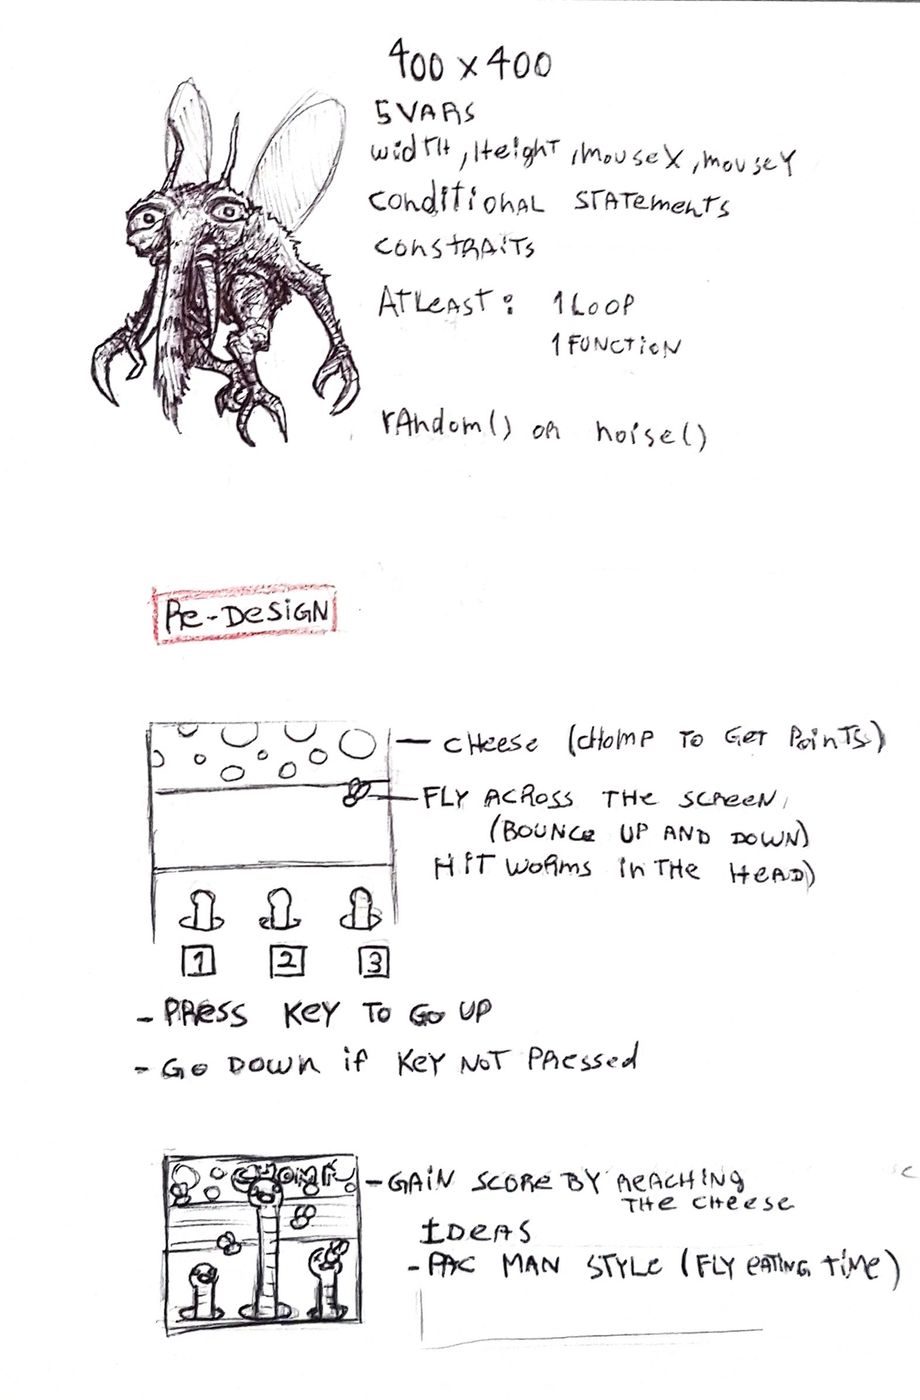 400 x 400
5 VARS
width, Height, mouseX, mouseY
conditional statements
constraits
At least: 1 Loop
1 Function
random() or noise()
Re-Design
Cheese (chomp to get points)
Fly across the screen,
(Bounce up and down)
Hit worms in the head)
1 2 3
- Press key to go up
- Go down if key not pressed
CHOMP
- Gain score by reaching
the cheese
Ideas
- Pac Man style (Fly eating time)
c